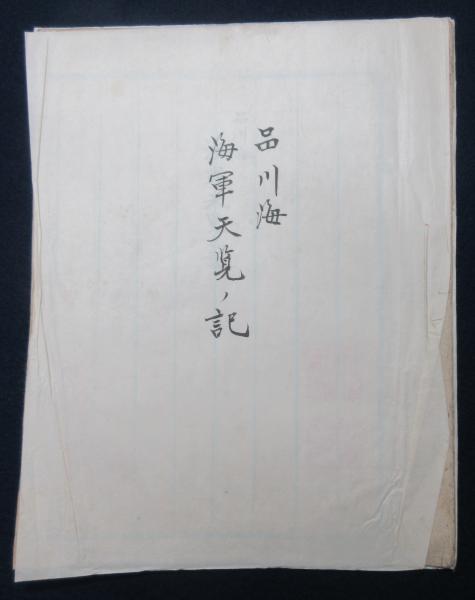 品川海
海軍天覧ノ記